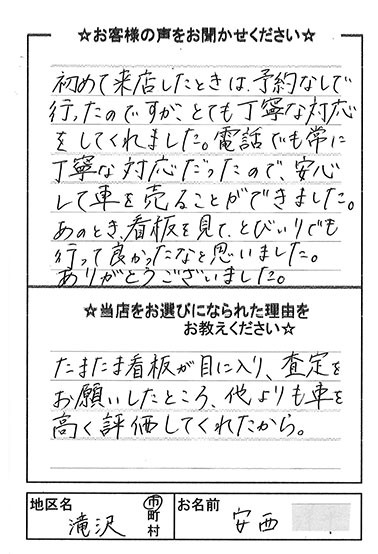 ☆お客様の声をお聞かせください☆
初めて来店したときは、予約なしで
行ったのですが、とても丁寧な対応
をしてくれました。電話でも常に
丁寧な対応だったので、安心
して車を売ることができました。
あのとき、看板を見て、とびいりでも
行って良かったなと思いました。
ありがとうございました。
☆当店をお選びになられた理由を
お教えください☆
たまたま看板が目に入り、査定を
お願いしたところ、他よりも車を
高く評価してくれたから。
地区名 滝沢 市町村 お名前 安西